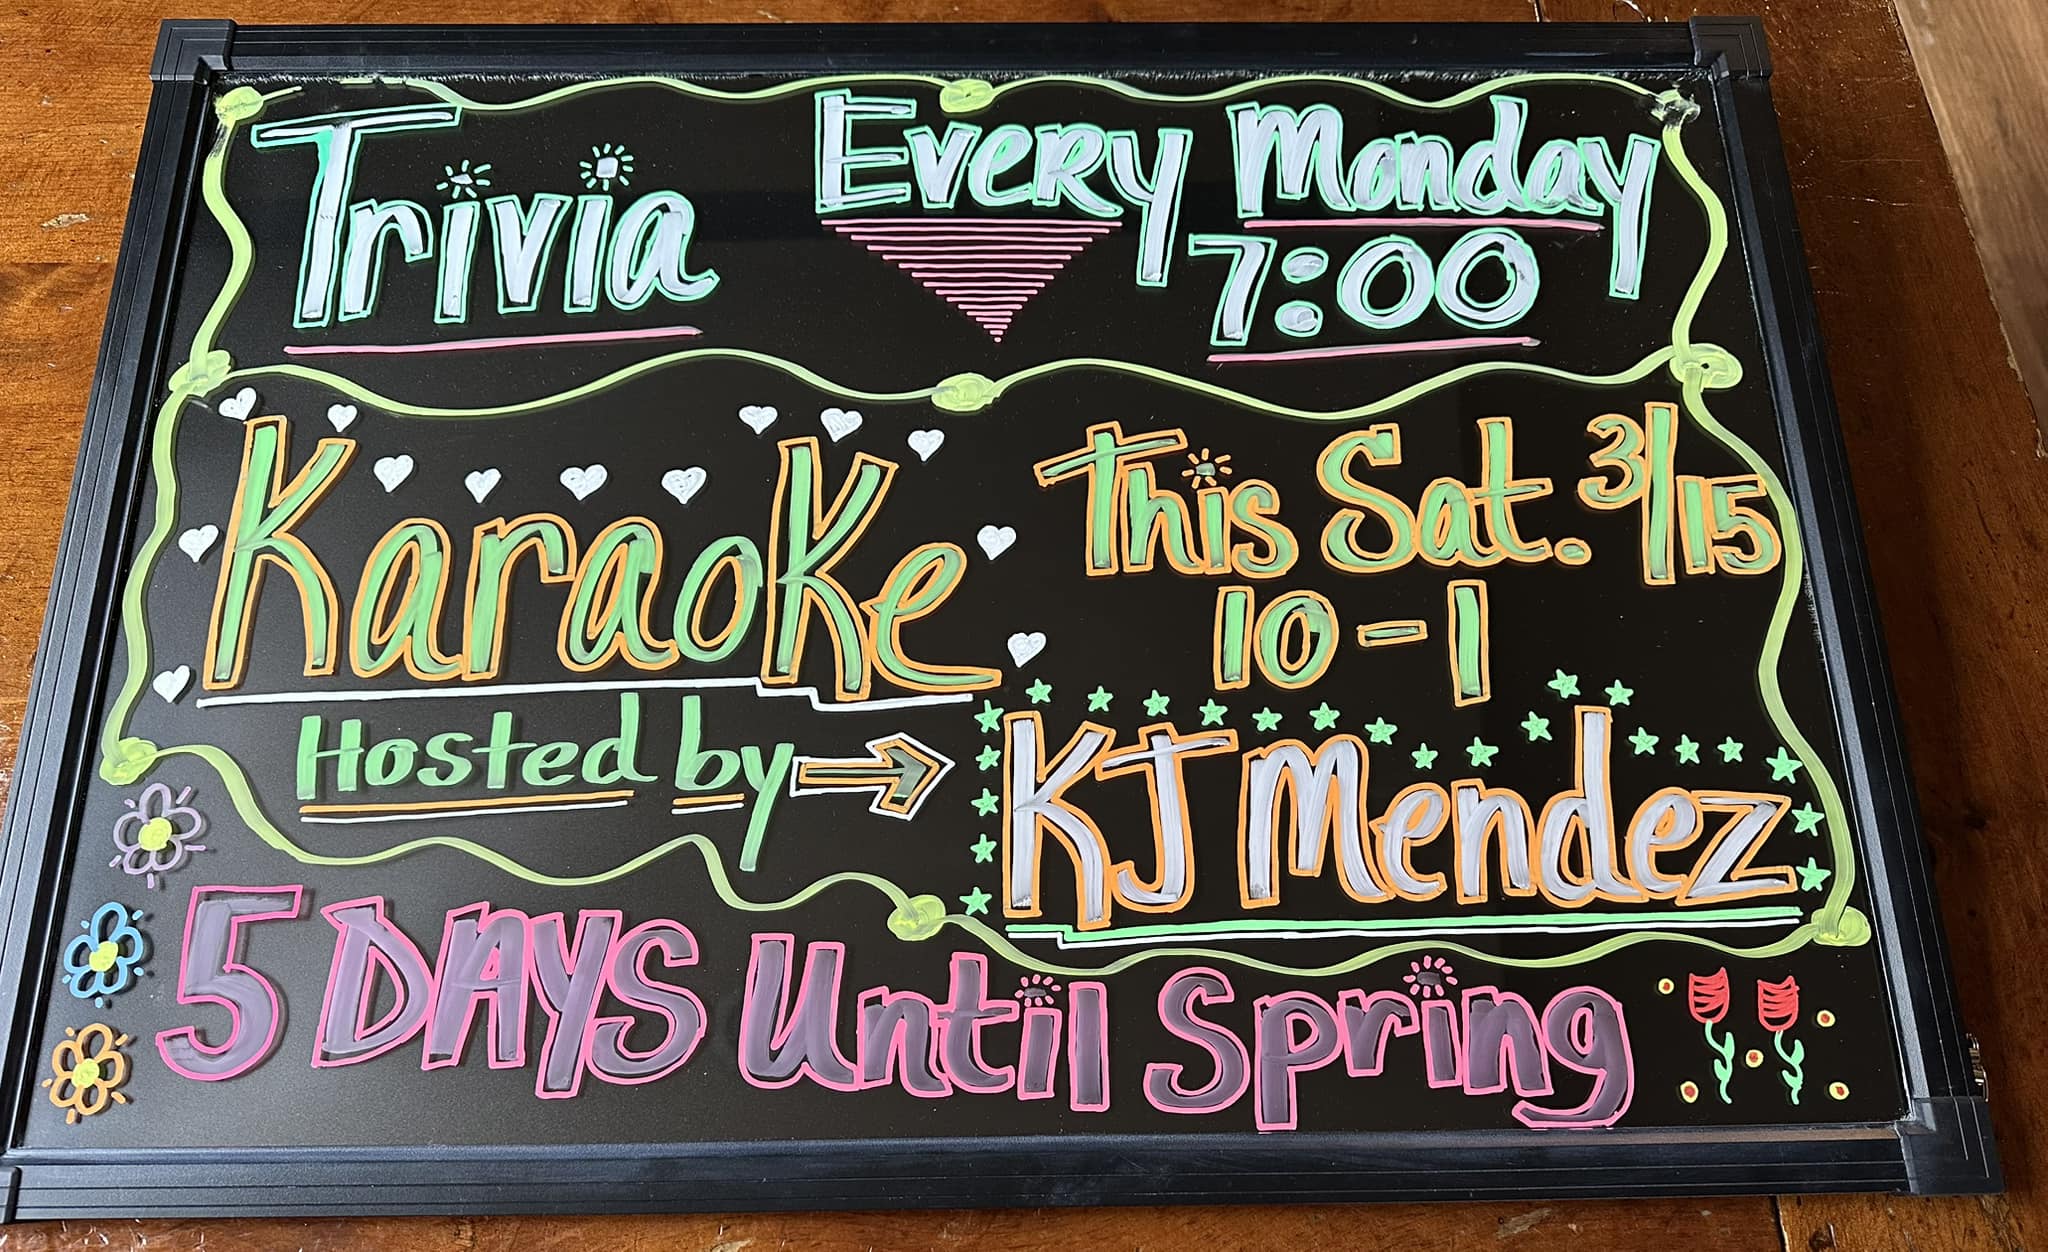 Trivia
Every Monday
7:00
Karaoke
This Sat. 3/15
10-1
Hosted by
KJ Mendez
5 DAYS Until Spring